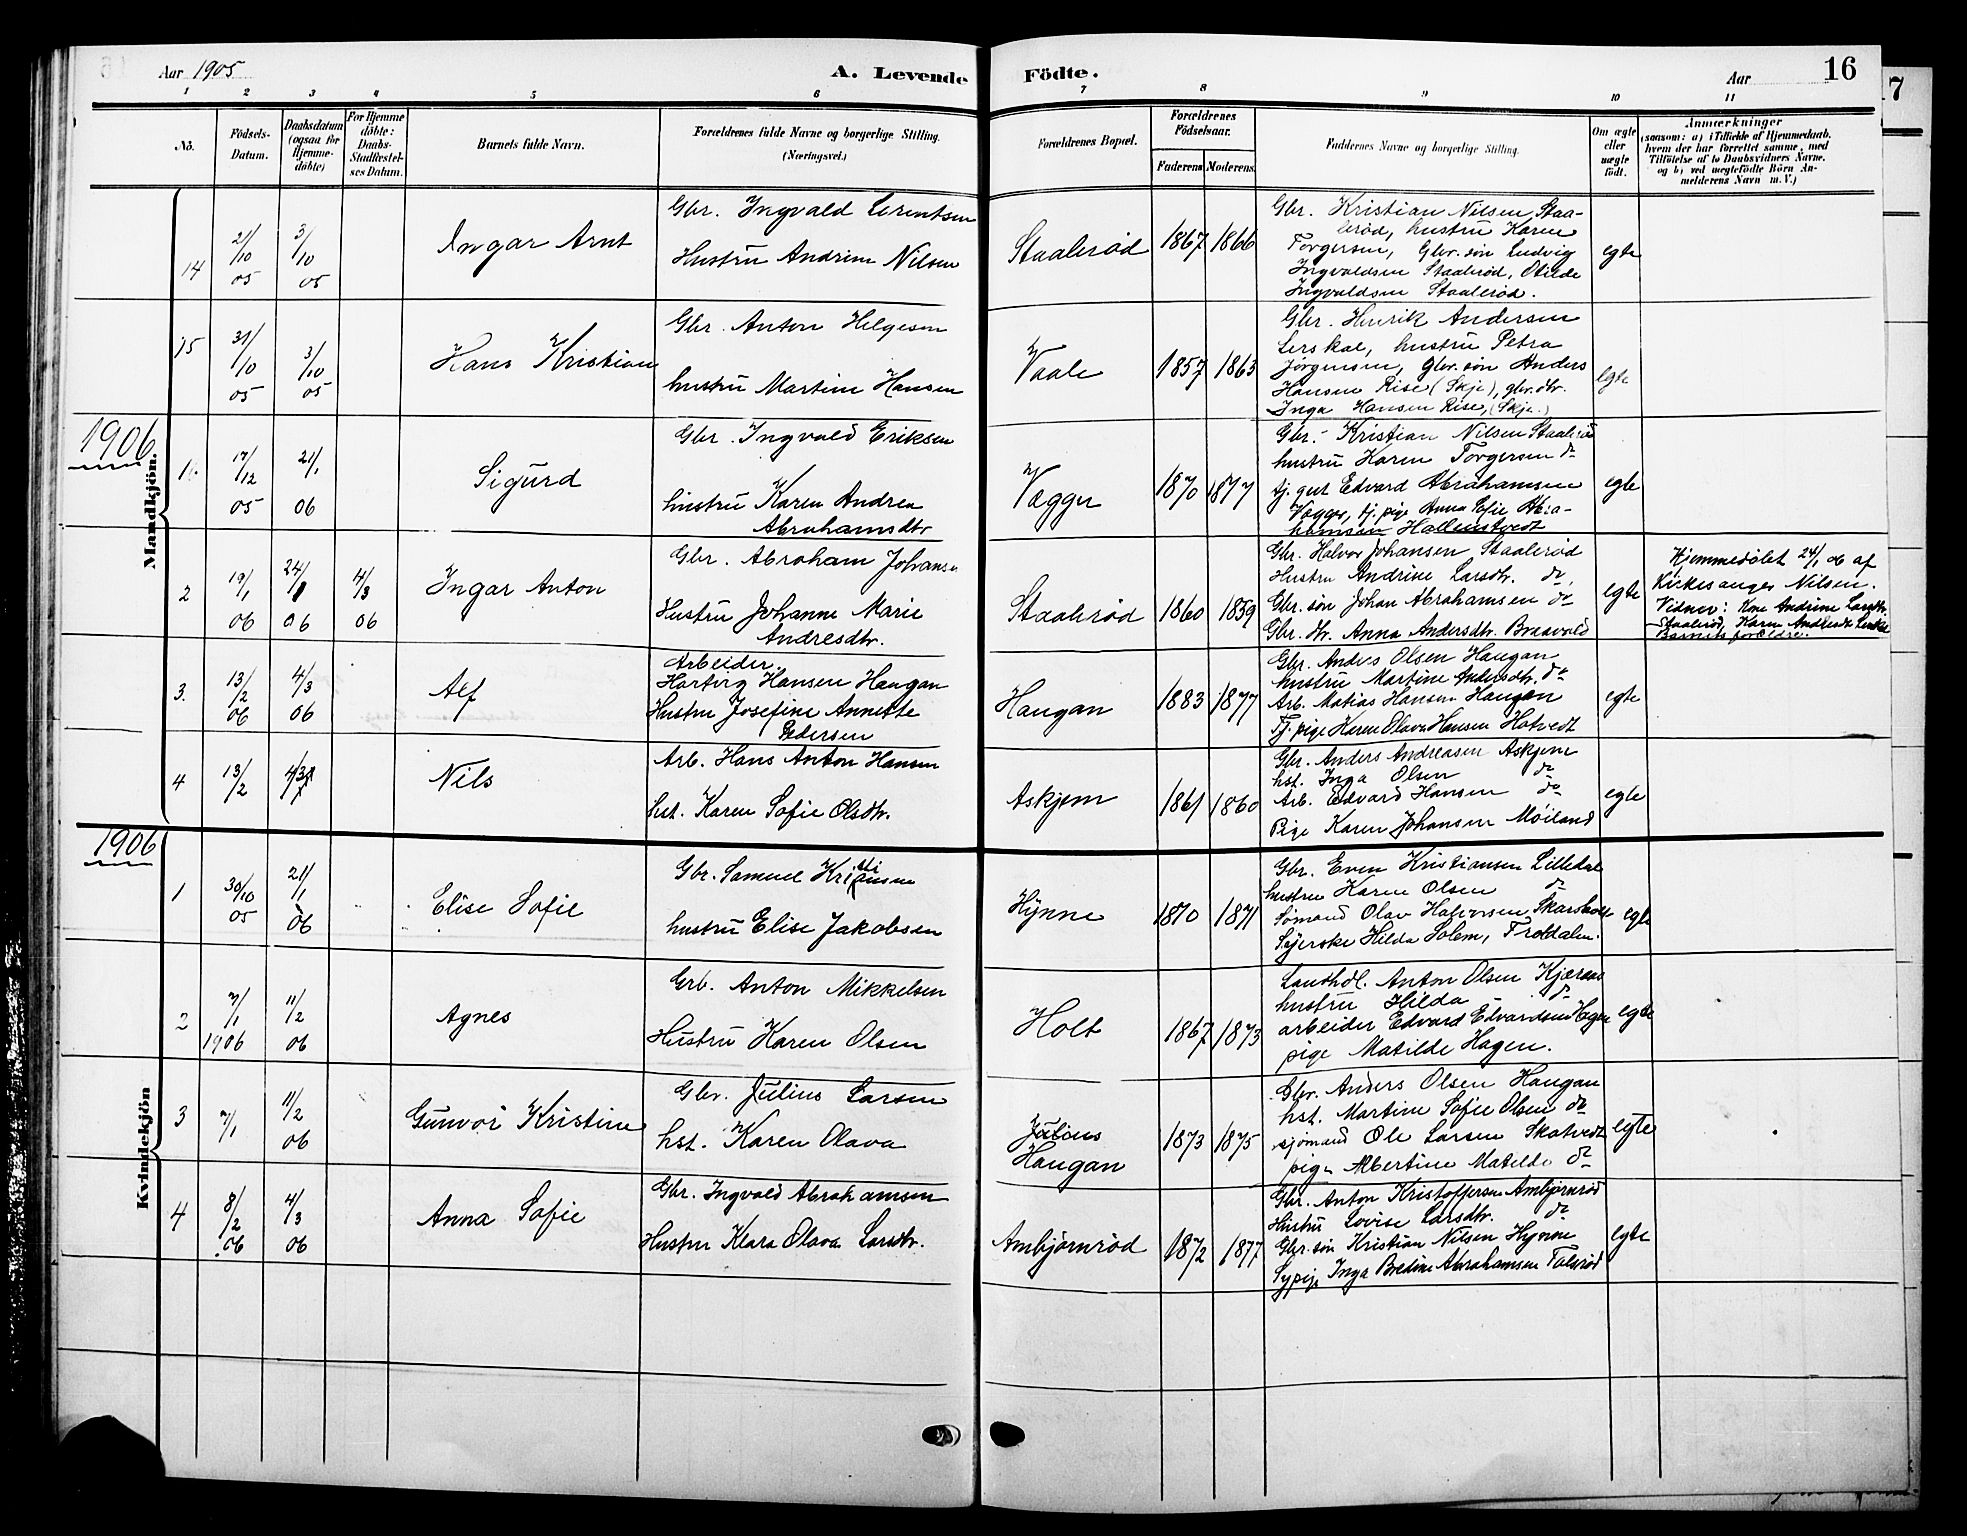 Aar 1905
A. Levende Födte.
Aar
16
1 2 3 4 5 6 7 8 9 10 11
No.
Födsels-
Datum.
Daabsdatum
(ogsaa for
Hjemme-
döbte)
For Hjemme
döbte:
Daabs-
Stadfestel-
ses Datum.
Barnets fulde Navn.
Forældrenes fulde Navne og borgerlige Stilling.
(Næringsvei.)
Forældrenes Bopæl.
Forældrenes
Födselsaar.
Faderens Moderens
Faddernes Navne og borgerlige Stilling.
Om ægte
eller
uægte
födt.
Anmærkninger
(saasom: a) i Tilfælde af Hjemmedaab.
hvem der har forrettet samme, med
Tilföielse af to Daabsvidners Navne.
og b) ved uægtefödte Börn An-
melderens Navn m. V.)
Mandkjön.
14
21/10
05
3/10
05
Ingar Arnt
Gbr. Ingvald Lorentsen
Hustru Andrine Nilsen
Staalerød
1867 1866
Gbr. Kristian Nilsen Staa-
lerød, hustru Karen
Torgersen, Gbr. søn Ludvig
Ingvaldsen Staalerød, Otilde
Ingvaldsen Staalerød.
egte
15
31/10
05
3/10
05
Hans Kristian
Gbr. Anton Helgesen
hustru Martine Hansen
Vaale
1857 1863
Gbr. Henrik Andersen
Lerskal, hustru Petra
Jørgensen, Gbr. søn Anders
Hansen Rise (Skje), gbr. dtr.
Inga Hansen Rise, (Skje.)
egte
1906
1.
17/12
05
21/1
06
Sigurd
Gbr. Ingvald Eriksen
hustru Karen Andrea
Abrahamsdtr
Vægger
1870 1877
Gbr. Kristian Nilsen Staalerød
hustru Karen Torgersen do
tj. gut Edvard Abrahamsen
Vægger, tj. pige Anna Sofie Abra-
hamsen Hallenstvedt
egte
2
19/1
06
24/1
06
4/3
06
Ingar Anton
Gbr. Abraham Johansen
Hustru Johanne Marie
Andresdtr.
Staalerød
1860 1859
Gbr. Halvor Johansen Staalerød
Hustru Andrine Larsdtr. do.
Gbr. søn Johan Abrahamsen do
Gbr. dr. Anna Andersdtr. Braavold
egte
Hjemmedøbt 24/1 06 af
Kirkesanger Nilsen.
Vidner: Kone Andrine Larsdtr.
Staalerød, Karen Andresdt
Barnets forældre.
3.
13/2
06
4/3
06
Alf
Arbeider.
Hartvig Hansen Haugan
Hustru Josefine Annette
Pedersen
Haugan
1883 1877
Gbr. Anders Olsen Haugan
hustru Martine Andersdtr. do
Arb. Matias Hansen Haugan
Tj. pige Karen Olava Hansen Hotvedt
egte
4
13/2
4/3
Nils
Arb. Hans Anton Hansen
hst. Karen Sofie Olsdtr.
Askjem
1861 1860
Gbr. Anders Andreasen Askjem
hst. Inga Olsen do
Arb. Edvard Hansen do
Pige Karen Johansen Møiland
egte
1906
Kvindekjön
1
30/10
05
21/1
06
Elise Sofie
Gbr. Samuel Kristiansen
hustru Elise Jakobsen
Hynne
1870 1871
Gbr. Even Kristiansen Lilledal
hustru Karen Olsen do
Sømand Olav Halvorsen Skarsholt
Syerske Hilda Solem, Troldalen.
egte
2
7/1
1906
11/2
06
Agnes
Grb. Anton Mikkelsen
Hustru Karen Olsen
Holt
1867 1873
Landhdl. Anton Olsen Kjæraas
hustru Hilda do
arbeider Edvard Edvardsen Hagen
pige Matilde Hagen.
egte
3
7/1
11/2
06
Gunvor Kristine
Gbr. Julius Larsen
hst. Karen Olava
Julius
Haugan
1873 1875
Gbr. Anders Olsen Haugan
hst. Martine Sofie Olsen do
sjømand Ole Larsen Skatvedt
pige Albertine Matilde do
egte
4
8/2
06
4/3
06
Anna Sofie
Gbr. Ingvald Abrahamsen
Hustru Klara Olava Larsdtr.
Ambjørnrød
1872 1877
Gbr. Anton Kristoffersen Ambjørnrød
Hustru Lovise Larsdtr. do
Gbr. søn Kristian Nilsen Hynne
Sypige Inga Bredine Abrahamsen Talerød
egte